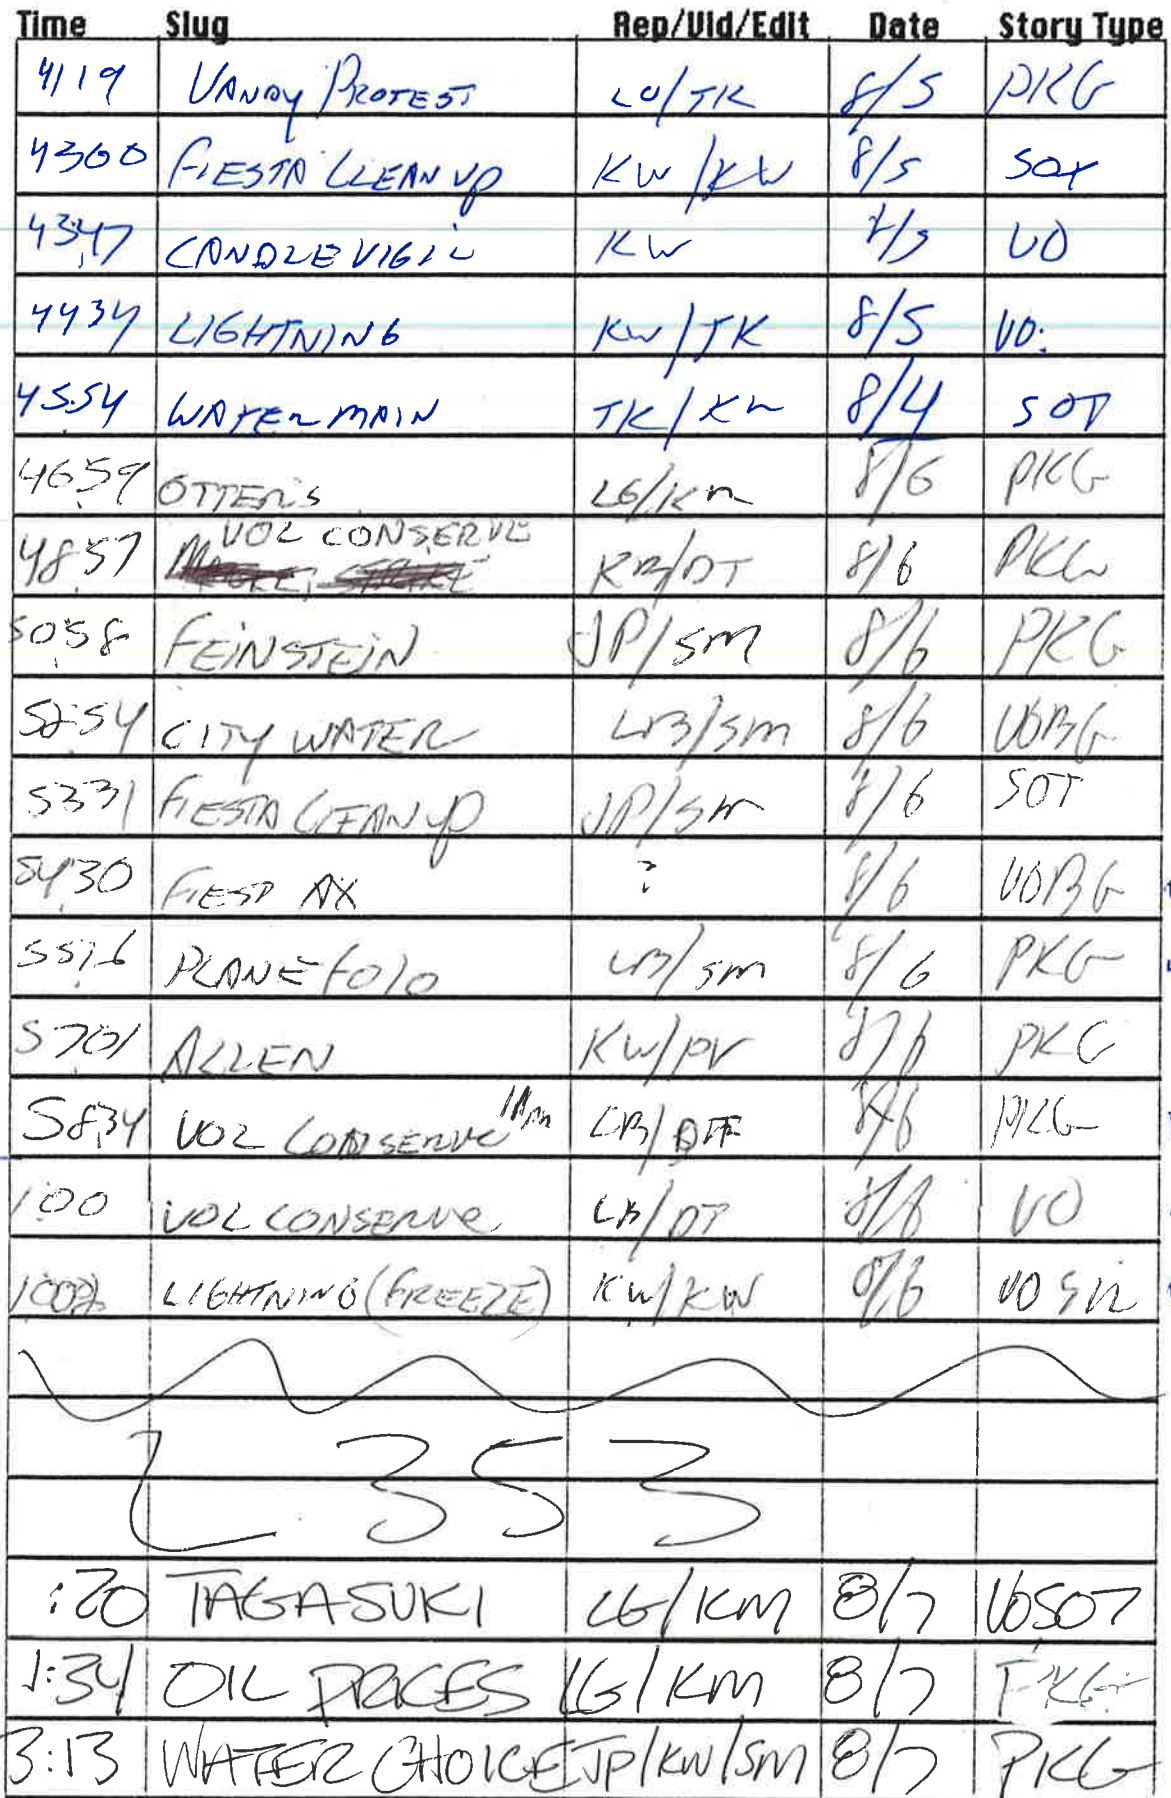 Time Slug Rep/Vid/Edit Date Story Type
4119 VANDY PROTEST LO/TK 8/5 PKG
4300 FIESTA CLEAN UP KW/KW 8/5 SOT
43:47 CANDLE VIGIL KW 8/5 VO
4434 LIGHTNING KW/TK 8/5 VO.
45:54 WATER MAIN TK/KW 8/4 SOT
46:59 OTTERS LG/KM 8/6 PKG
48:57 VOL CONSERVE KB/DT 8/6 PKG
50:58 FEINSTEIN JP/SM 8/6 PKG
52:54 CITY WATER LB/SM 8/6 VOBG
5331 FIESTA CLEAN UP JP/SM 8/6 SOT
54:30 FIEST AX ? 8/6 VOBG
PLANE FOLO LB/SM 8/6 PKG
5701 ALLEN KW/PV 8/6 PKG
58:34 VOL CONSERVE LB/DT 8/6 PKG
1:00 VOL CONSERVE LB/DT 8/6 VO
LIGHTNING (FREEZE) KW/KW 8/6
L 353
:20 TAGASUKI LG/KM 8/7 VOSOT
1:34 OIL PRICES LG/KM 8/7 PKG
3:13 WATER CHOICE JP/KW/SM 8/7 PKG